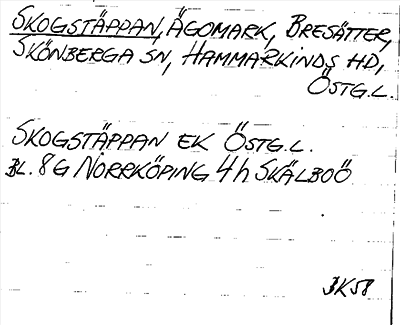 SKOGSTÄPPAN, ÄGOMARK, BRESÄTTER,
SKÖNBERGA SN, HAMMARKINDS HD,
ÖSTG.L.
SKOGSTÄPPAN EK ÖSTG.L.
BL. 8G NORRKÖPING 4h SKÄLBOÖ
BK58